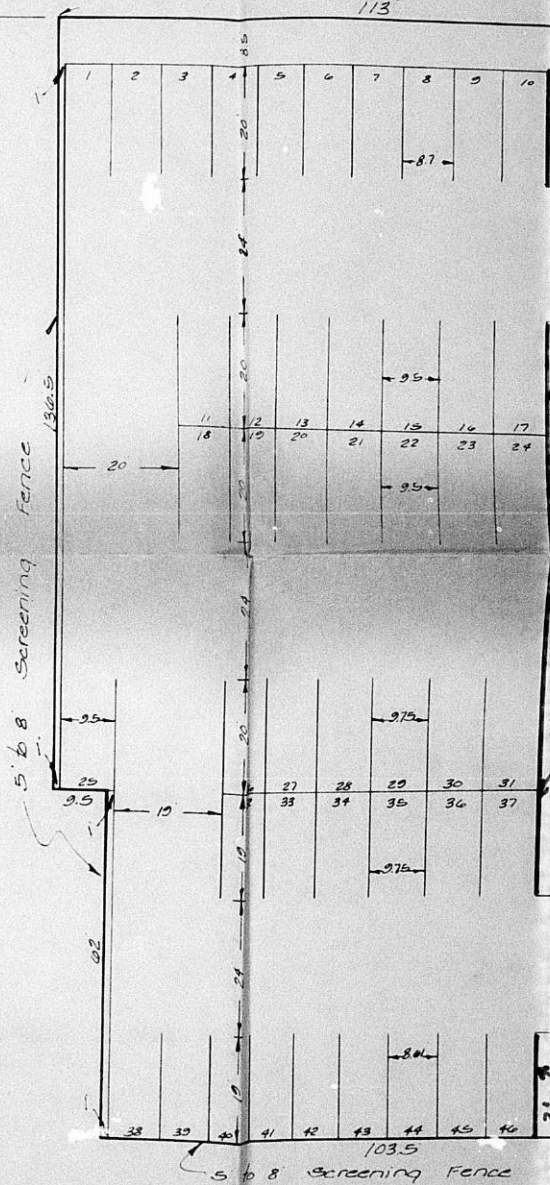 113
8.5
1 2 3 4 5 6 7 8 9 10
20
8.7
24
20
9.5
11 12 13 14 15 16 17
18 19 20 21 22 23 24
20
136.5
5 to 8 Screening Fence
20
9.5
24
9.5
20
9.75
25 27 28 29 30 31
9.5
33 34 35 36 37
19
19
9.75
62
24
8.61
19
38 39 40 41 42 43 44 45 46
103.5
5 to 8 Screening Fence